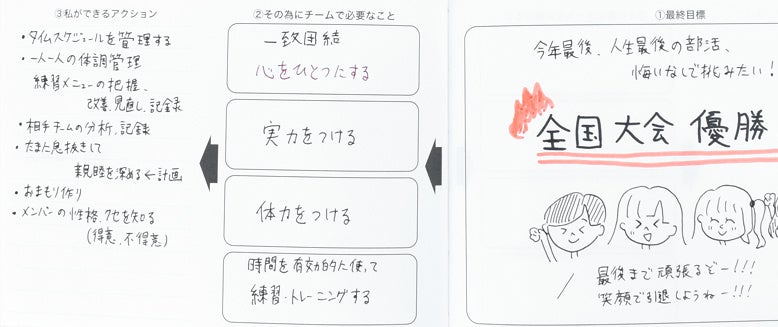 ①最終目標
今年最後、人生最後の部活、
悔いなしで挑みたい!
全国大会優勝
最後まで頑張るぞー!!!
笑顔で引退しようねー!!!
②その為にチームで必要なこと
一致団結
心をひとつにする
実力をつける
体力をつける
時間を有効的に使って
練習・トレーニングする
③私ができるアクション
・タイムスケジュールを管理する
・一人一人の体調管理
練習メニューの把握、
改善、見直し、記録
・相手チームの分析、記録
・たまに息抜きして
親睦を深める←計画
・おまもり作り
・メンバーの性格、他を知る
(得意、不得意)